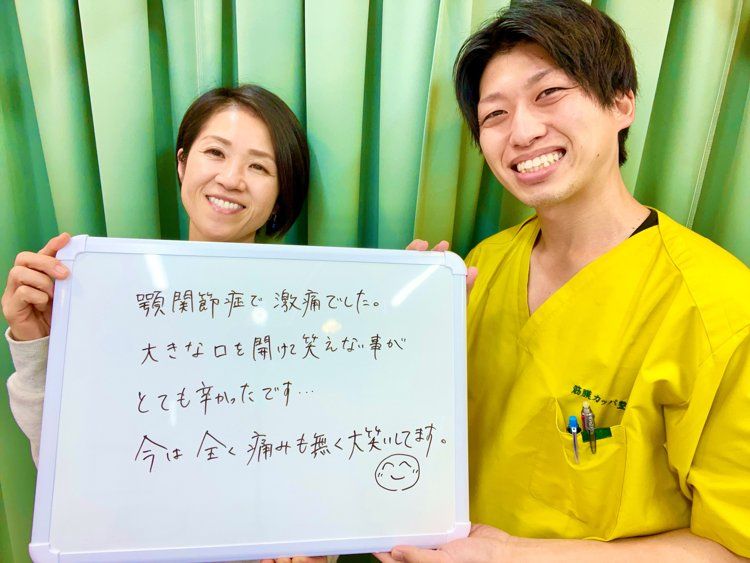 顎関節症で激痛でした。
大きな口を開けて笑えない事が
とても辛かったです…
今は全く痛みも無く大笑いしてます。
筋膜カッパ整